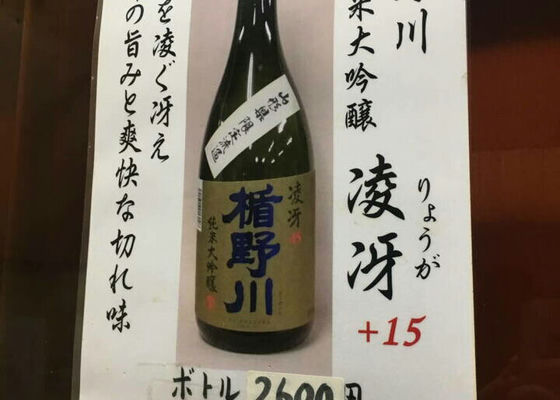 川
米大吟醸
凌冴
りょうが
+15
山形県限定流通
凌冴
楯野川
純米大吟醸
を凌ぐ冴え
の旨みと爽快な切れ味
ボトル 2600円